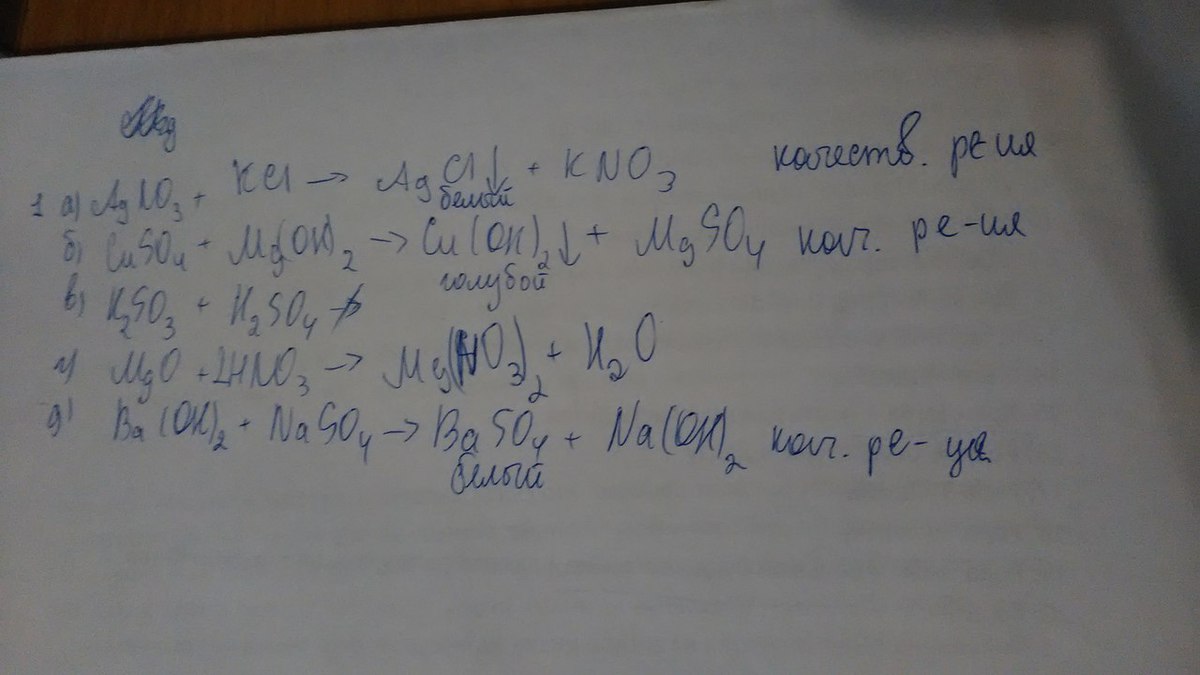 1 а) AgNO₃ + KCl → AgCl↓ + KNO₃ качеств. ре-ия
белый
б) CuSO₄ + Mg(OH)₂ → Cu(OH)₂↓ + MgSO₄ кач. ре-ия
голубой
в) K₂SO₃ + H₂SO₄ ↛
г) MgO + 2HNO₃ → Mg(NO₃)₂ + H₂O
д) Ba(OH)₂ + NaSO₄ → BaSO₄ + Na(OH)₂ кач. ре-ция
белый